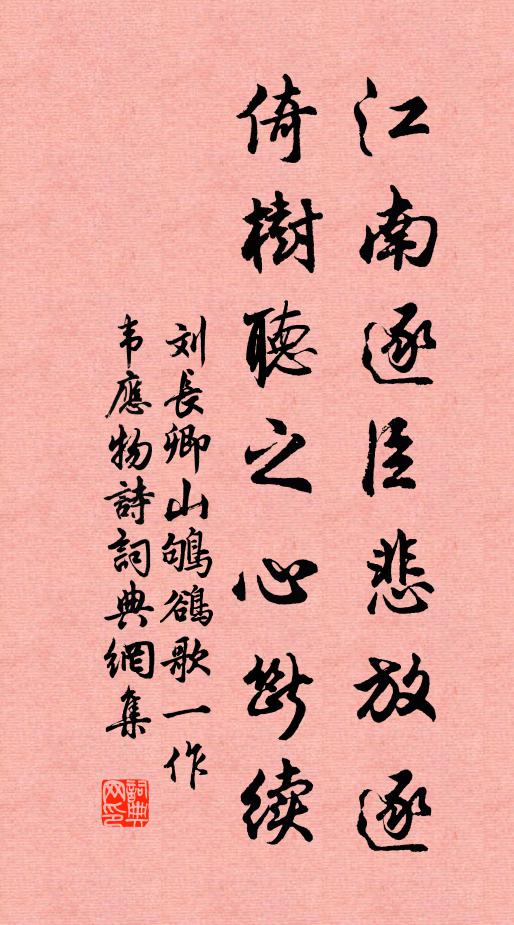 江南逐臣悲放逐
倚樹聽之心斷續
刘長卿山鴝鵒歌一作
韦應物詩詞典網集
詞典网印